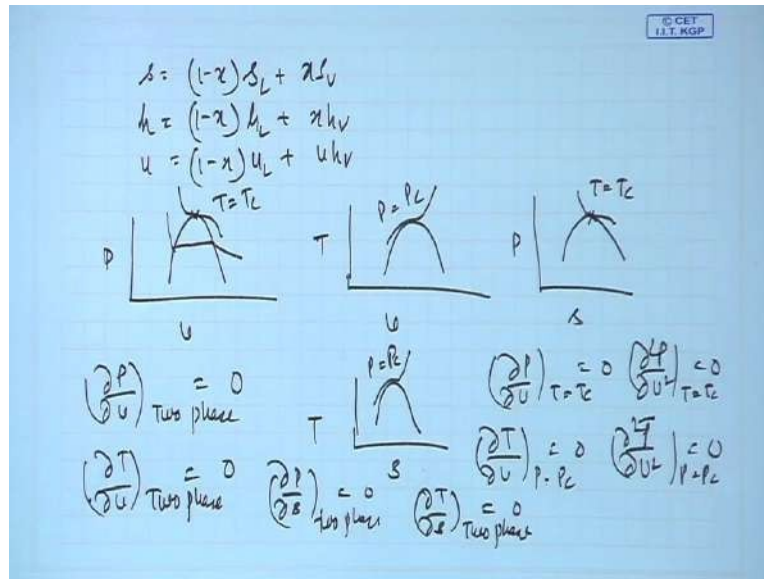 © CET
I.I.T. KGP
s = (1-x) s_L + x s_V
h = (1-x) h_L + x h_V
u = (1-x) u_L + u h_V
T = T_c
P
v
P = P_c
T
v
T = T_c
P
s
P = P_c
T
s
(∂P/∂v)_Two phase = 0
(∂T/∂v)_Two phase = 0
(∂P/∂s)_two phase = 0
(∂T/∂s)_Two phase = 0
(∂P/∂v)_T=T_c = 0 (∂²P/∂v²)_T=T_c = 0
(∂T/∂v)_P=P_c = 0 (∂²T/∂v²)_P=P_c = 0